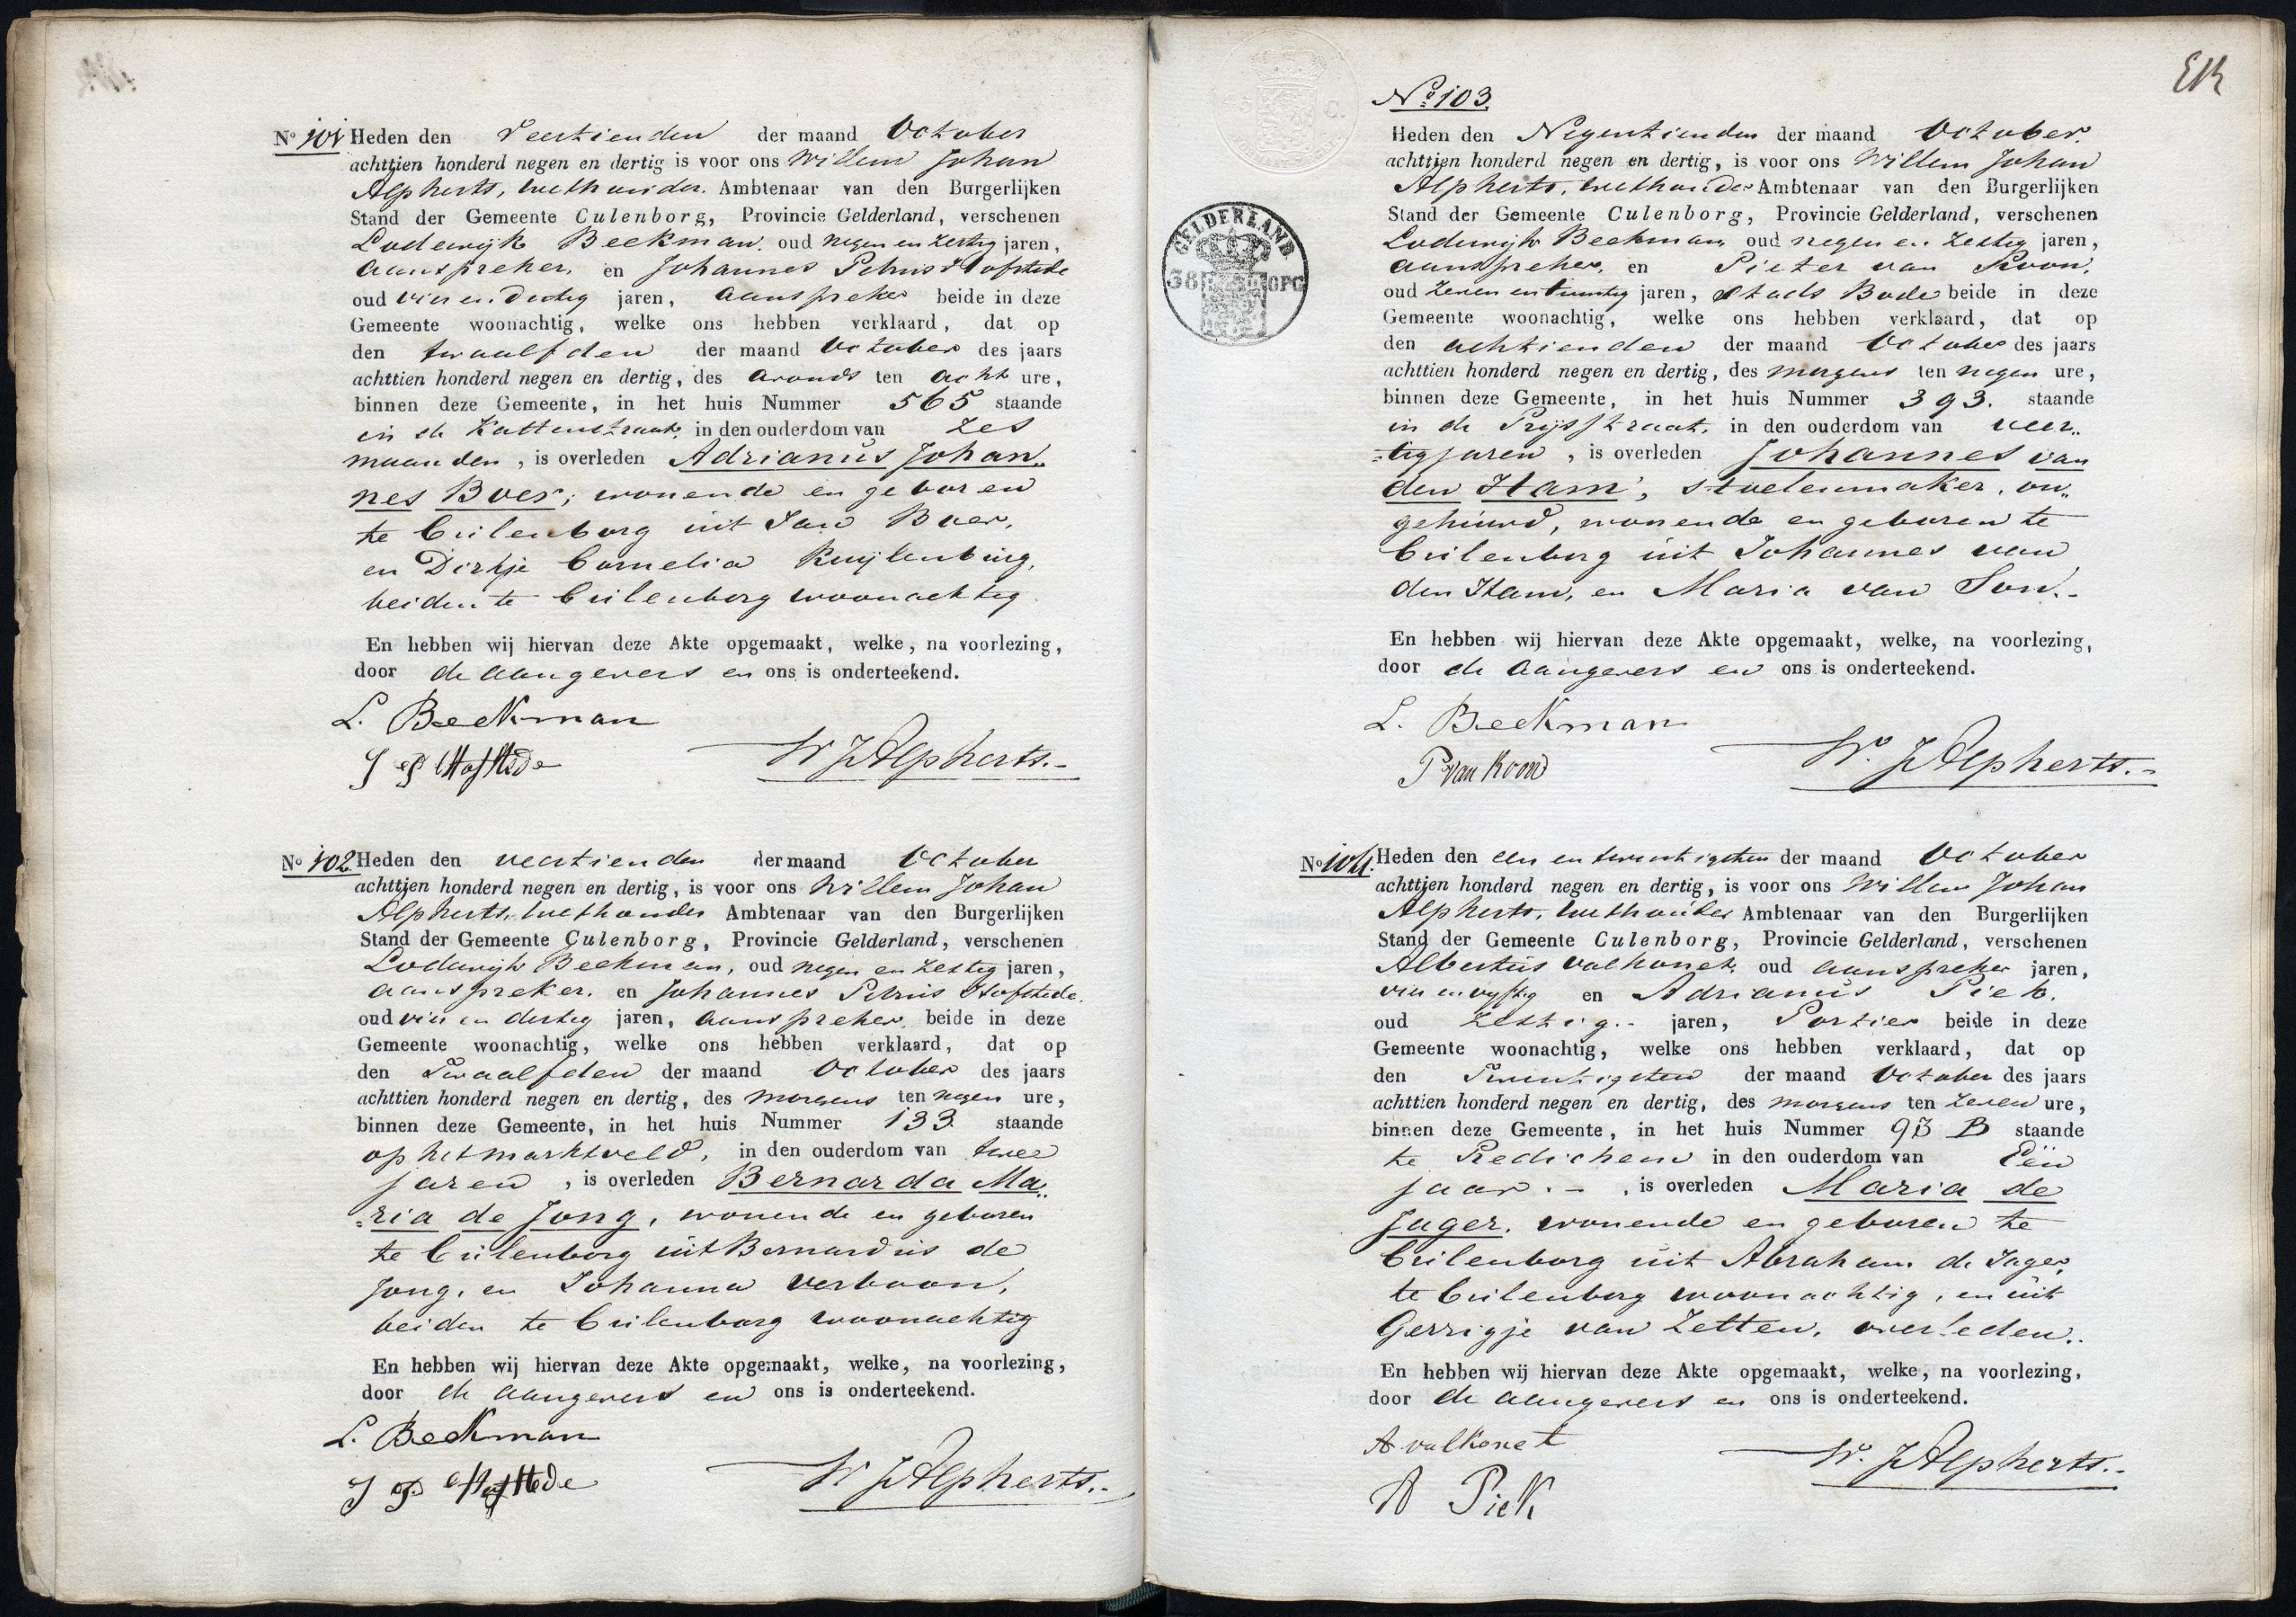 No 101 Heden den Veertienden der maand October
achttien honderd negen en dertig is voor ons Willem Johan
Alpherts, wethouder. Ambtenaar van den Burgerlijken
Stand der Gemeente Culenborg, Provincie Gelderland, verschenen
Lodewijk Beekman. oud negen en zestig jaren,
aanspreker, en Johannes Petrus Hofstede
oud vier en dertig jaren, aanspreker beide in deze
Gemeente woonachtig, welke ons hebben verklaard, dat op
den twaalfden der maand October des jaars
achttien honderd negen en dertig, des avonds ten acht ure,
binnen deze Gemeente, in het huis Nummer 565 staande
in de Kattenstraat, in den ouderdom van zes
maanden, is overleden Adrianus Johan„
nes Boer, wonende en geboren
te Cuilenborg uit Jan Boer,
en Dirkje Cornelia Kuijlenburg,
beiden te Cuilenborg woonachtig
En hebben wij hiervan deze Akte opgemaakt, welke, na voorlezing,
door de aangevers en ons is onderteekend.
L. Beekman
J P Hofstede
W J Alpherts.-
No 102 Heden den veertienden der maand October
achttien honderd negen en dertig, is voor ons Willem Johan
Alpherts, wethouder Ambtenaar van den Burgerlijken
Stand der Gemeente Culenborg, Provincie Gelderland, verschenen
Lodewijk Beekman, oud negen en zestig jaren,
aanspreker. en Johannes Petrus Hofstede.
oud vier en dertig jaren, aanspreker, beide in deze
Gemeente woonachtig, welke ons hebben verklaard, dat op
den Twaalfden der maand October des jaars
achttien honderd negen en dertig, des morgens ten negen ure,
binnen deze Gemeente, in het huis Nummer 133 staande
op het marktveld, in den ouderdom van twee
jaren, is overleden Bernarda Ma„
=ria de Jong, wonende en geboren
te Cuilenborg uit Bernardus de
Jong, en Johanna Verboon,
beiden te Cuilenborg woonachtig
En hebben wij hiervan deze Akte opgemaakt, welke, na voorlezing,
door de aangevers en ons is onderteekend.
L. Beekman
J P Hofstede
W J Alpherts.-
No 103.
Heden den Negentienden der maand October.
achttien honderd negen en dertig, is voor ons Willem Johan
Alpherts, wethouder Ambtenaar van den Burgerlijken
Stand der Gemeente Culenborg, Provincie Gelderland, verschenen
Lodewijk Beekman, oud negen en zestig jaren,
aanspreker, en Pieter van Koon,
oud zeven en twintig jaren, Stads Bode beide in deze
Gemeente woonachtig, welke ons hebben verklaard, dat op
den achtienden der maand October des jaars
achttien honderd negen en dertig, des morgens ten negen ure,
binnen deze Gemeente, in het huis Nummer 393. staande
in de Prijsstraat, in den ouderdom van veer„
=tig jaren, is overleden Johannes van
den Ham, stoelenmaker, on„
gehuwd, wonende en geboren te
Cuilenborg uit Johannes van
den Ham, en Maria van Son.-
En hebben wij hiervan deze Akte opgemaakt, welke, na voorlezing,
door de aangevers en ons is onderteekend.
L. Beekman
P van Koon
W. J Alpherts.-
GELDERLAND
38 OPC
No 104. Heden den een en twintigsten der maand October
achttien honderd negen en dertig, is voor ons Willem Johan
Alpherts, wethouder Ambtenaar van den Burgerlijken
Stand der Gemeente Culenborg, Provincie Gelderland, verschenen
Albertus Valkonet, oud aanspreker jaren,
vier en vijftig en Adrianus Piek.
oud zestig.- jaren, Portier beide in deze
Gemeente woonachtig, welke ons hebben verklaard, dat op
den Twintigsten der maand October des jaars
achttien honderd negen en dertig, des morgens ten zeven ure,
binnen deze Gemeente, in het huis Nummer 93 B staande
te Redichem in den ouderdom van Eén
jaar.-, is overleden Maria de
Jager, wonende en geboren te
Cuilenborg uit Abraham de Jager,
te Cuilenborg woonachtig, en uit
Gerrigje van Zetten, overleden.
En hebben wij hiervan deze Akte opgemaakt, welke, na voorlezing,
door de aangevers en ons is onderteekend.
A valkonet
A Piek
W. J Alpherts.-